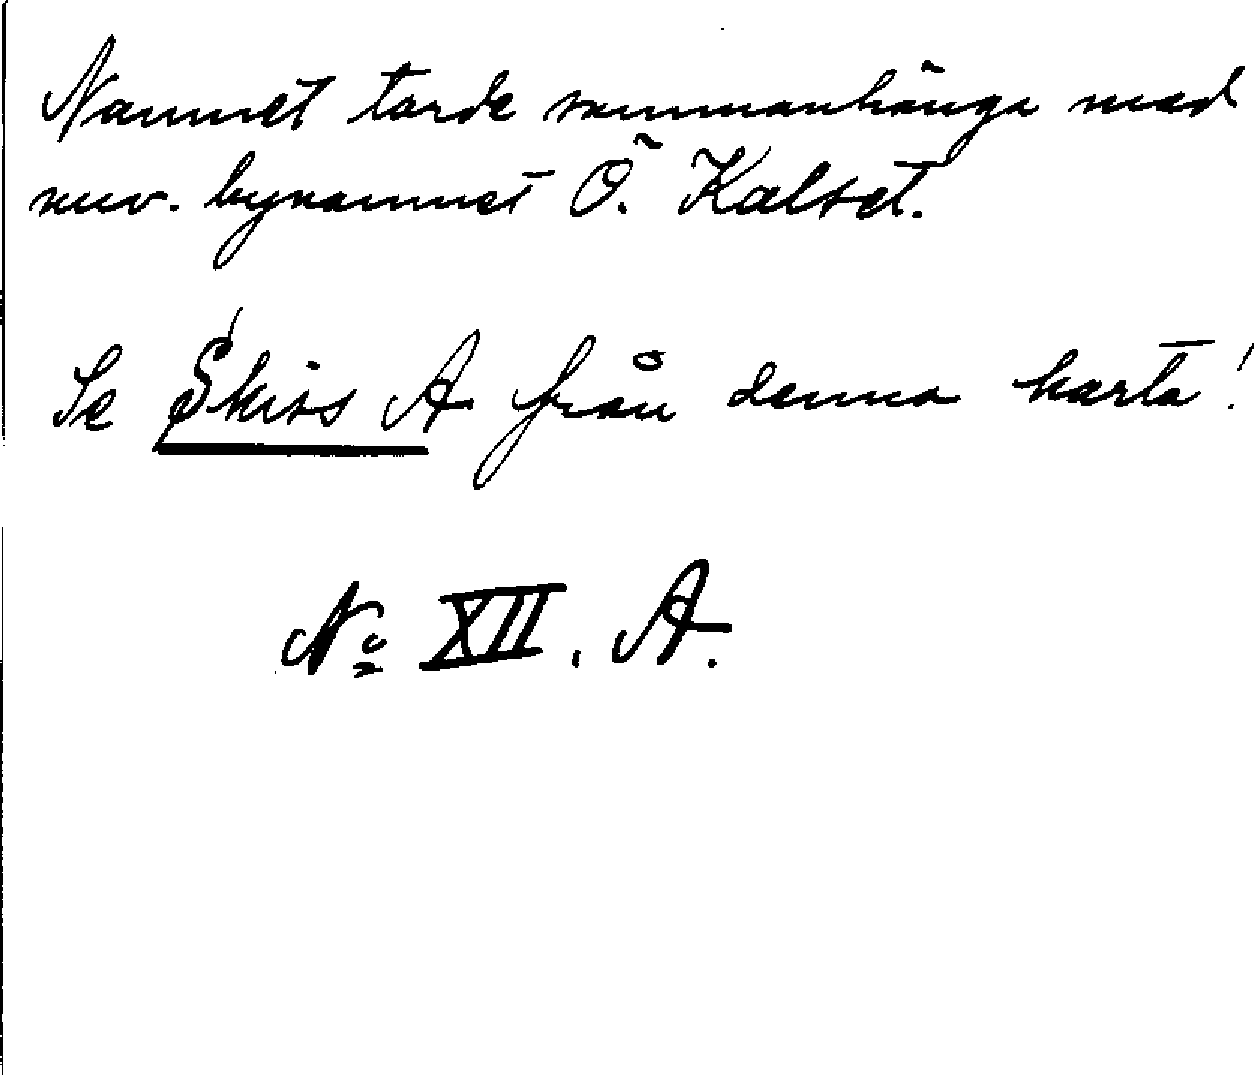 Namnet torde sammanhänga med
nuv. bynamnet Ö. Kalset.
Se Skiss A från denna karta!
No XII. A.